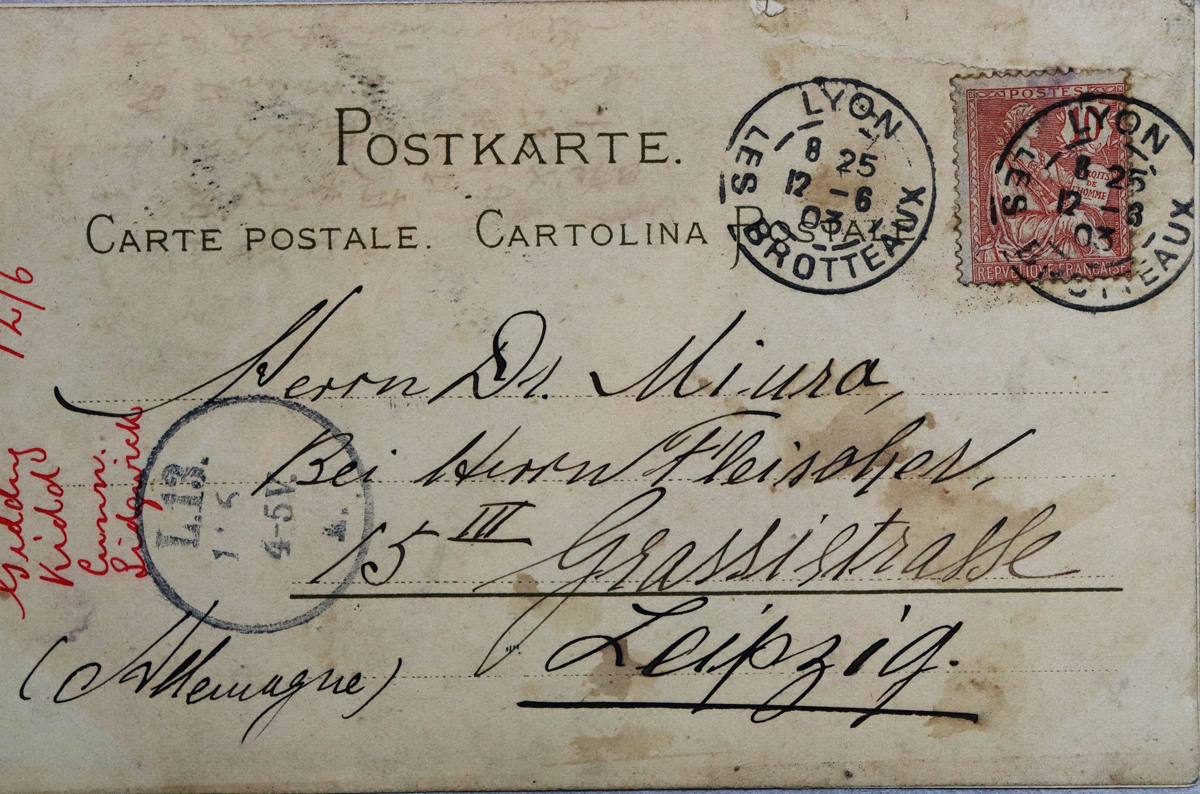 POSTKARTE.
CARTE POSTALE. CARTOLINA POSTALE
LYON
8 25
12 - 6
03
LES BROTTEAUX
POSTES
10
DROITS
DE
L'HOMME
REPVBLIQVE FRANÇAISE
LYON
8 25
12 - 6
03
LES BROTTEAUX
12/6
Herrn Dr. Miura,
Bei Herrn Fleischer,
15 III Grassistrasse
Leipzig.
(Allemagne)
L.13.
4-5V.
Giddings
Kidd
Cunn.
Sidgwick